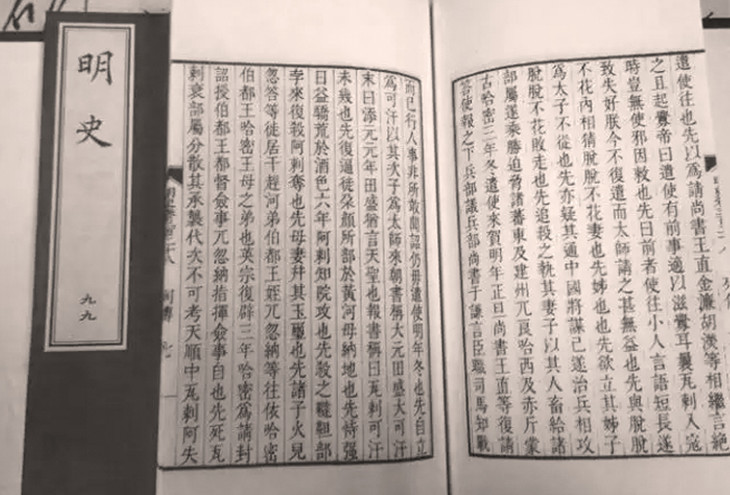 遣使往也先以爲請尚書王直金濂胡濙等相繼言絕
之且起釁帝曰遣使有前事適以滋釁耳曩瓦剌入寇
時豈無使邪因敕也先曰前者使往小人言語短長遂
致失好朕今不復遣而太師請之甚無益也先與脫脫
不花內相猜脫脫不花妻也先姊也也先欲立其姊子
爲太子不從也先亦疑其通中國將謀己遂治兵相攻
脫脫不花敗走也先追殺之執其妻子以其人畜給諸
部屬遂乘勝迫脅諸蕃東及建州兀良哈西及赤斤蒙
古哈密三年冬遣使來賀明年正旦尚書王直等復請
答使報之下兵部議兵部尚書于謙言臣職司馬知戰
而已行人事非所敢聞詔仍毋遣使明年冬也先自立
爲可汗以其次子爲太師來朝書稱大元田盛大可汗
末曰添元元年田盛猶言天聖也報書稱曰瓦剌可汗
未幾也先復逼徙朵顏所部於黃河母納地也先恃强
日益驕荒於酒色六年阿剌知院攻也先殺之韃靼部
孛來復殺阿剌奪也先母妻幷其玉璽也先諸子火兒
忽答等徙居干趕河弟伯都王姪兀忽納等往依哈密
伯都王哈密王母之弟也英宗復辟三年哈密爲請封
詔授伯都王都督僉事兀忽納指揮僉事自也先死瓦
剌衰部屬分散其承襲代次不可考天順中瓦剌阿失
明史
九九